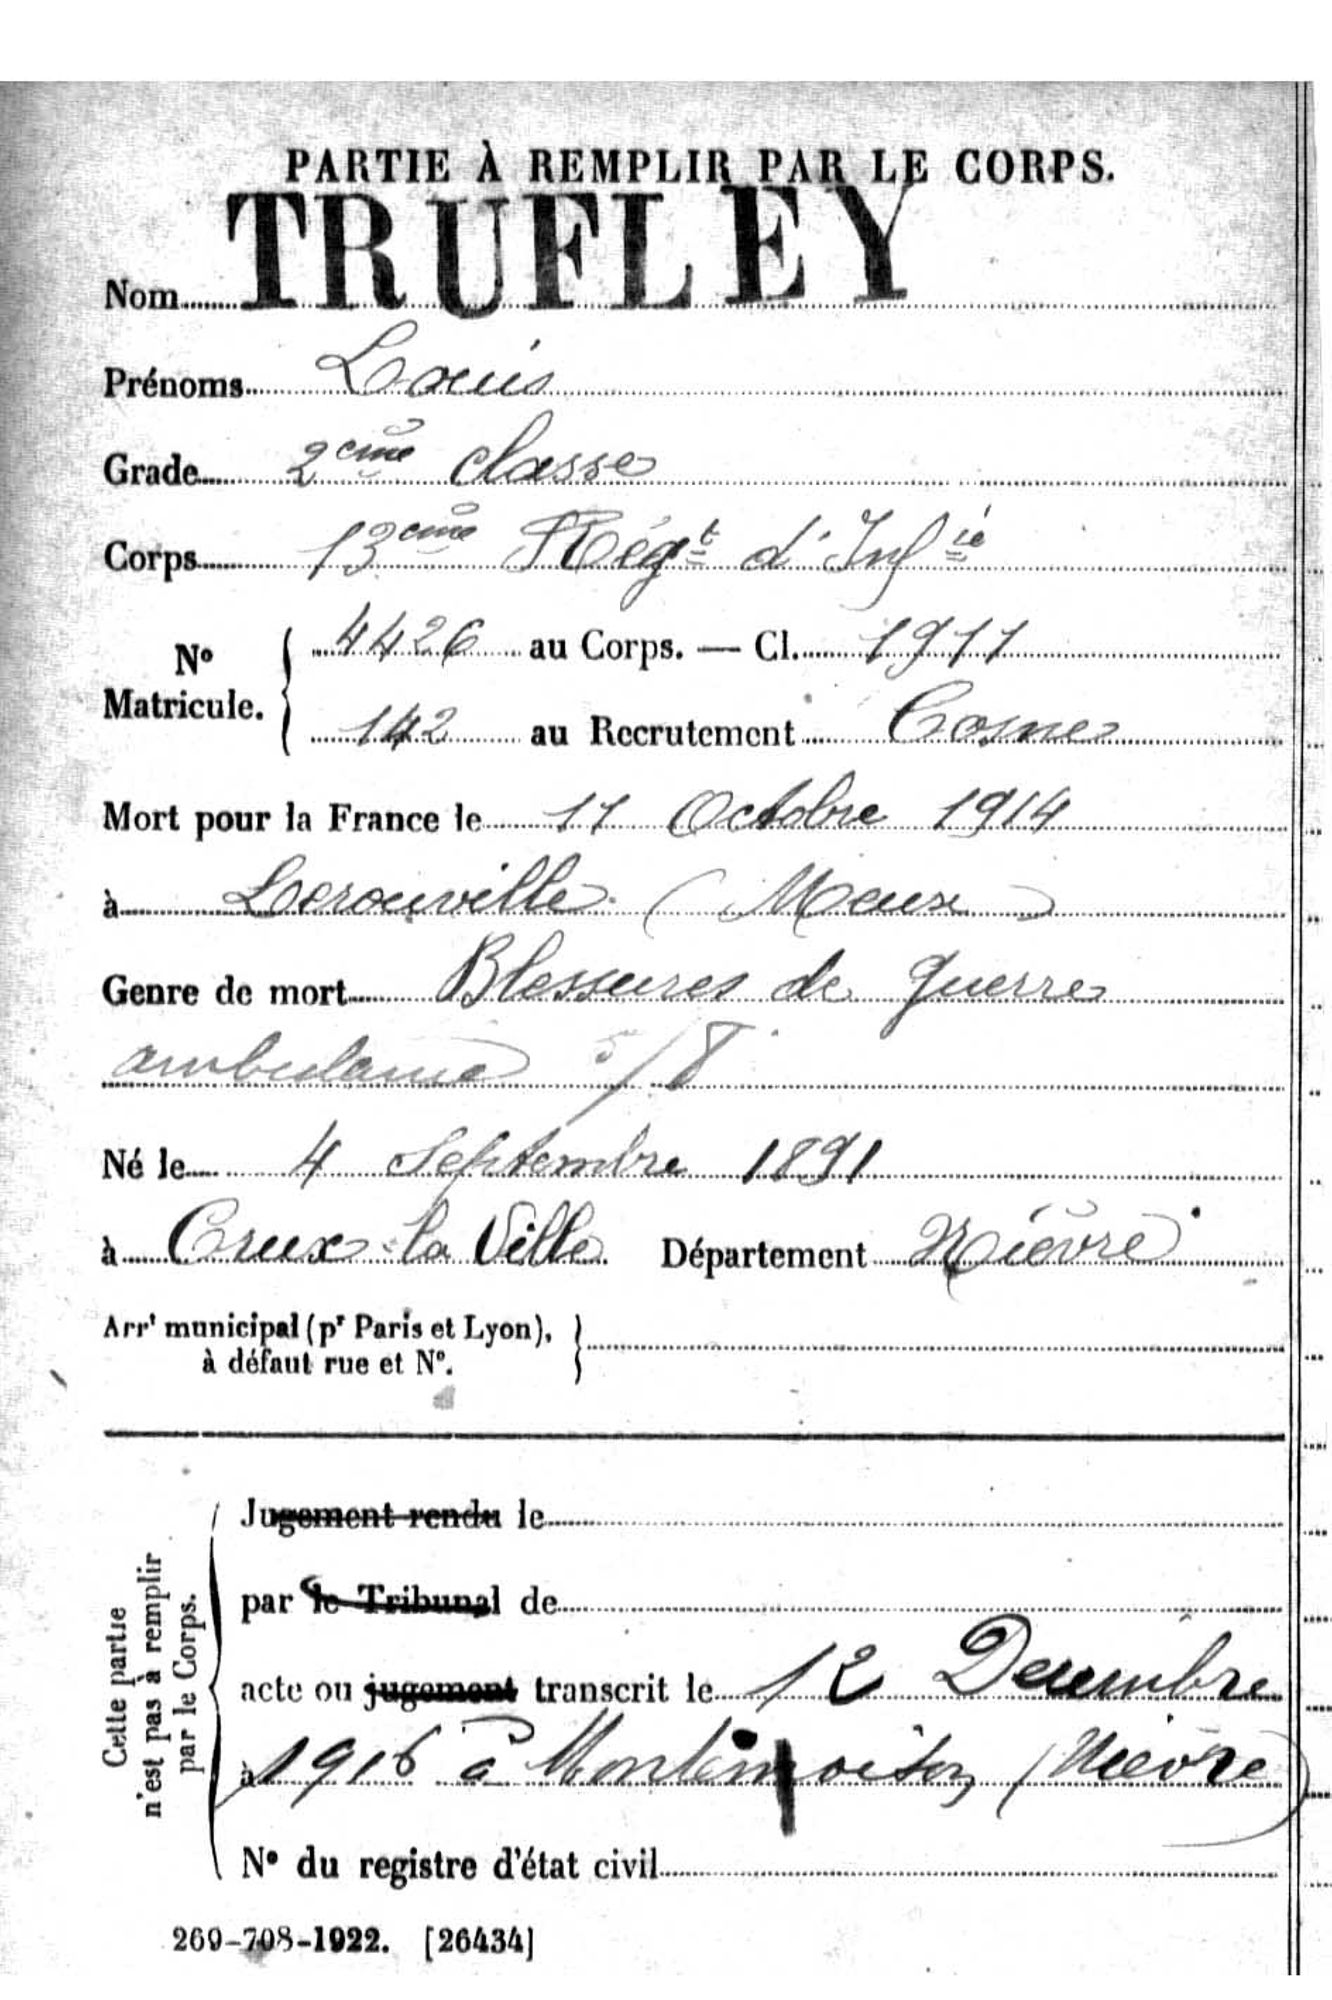 PARTIE À REMPLIR PAR LE CORPS.
Nom TRUFLEY
Prénoms Louis
Grade 2ème classe
Corps 13ème Régt d'Infie
No Matricule. 4426 au Corps. — Cl. 1911
142 au Recrutement Cosne
Mort pour la France le 11 Octobre 1914
à Lerouville (Meuse)
Genre de mort Blessures de guerre
ambulance 5/8
Né le 4 Septembre 1891
à Crux la Ville Département Nièvre
Arrt municipal (pr Paris et Lyon),
à défaut rue et No.
Cette partie
n'est pas à remplir
par le Corps.
Jugement rendu le
par le Tribunal de
acte ou jugement transcrit le 12 Decembre
à 1916 à Montenoison (Nièvre)
No du registre d'état civil
269-708-1922. [26434]